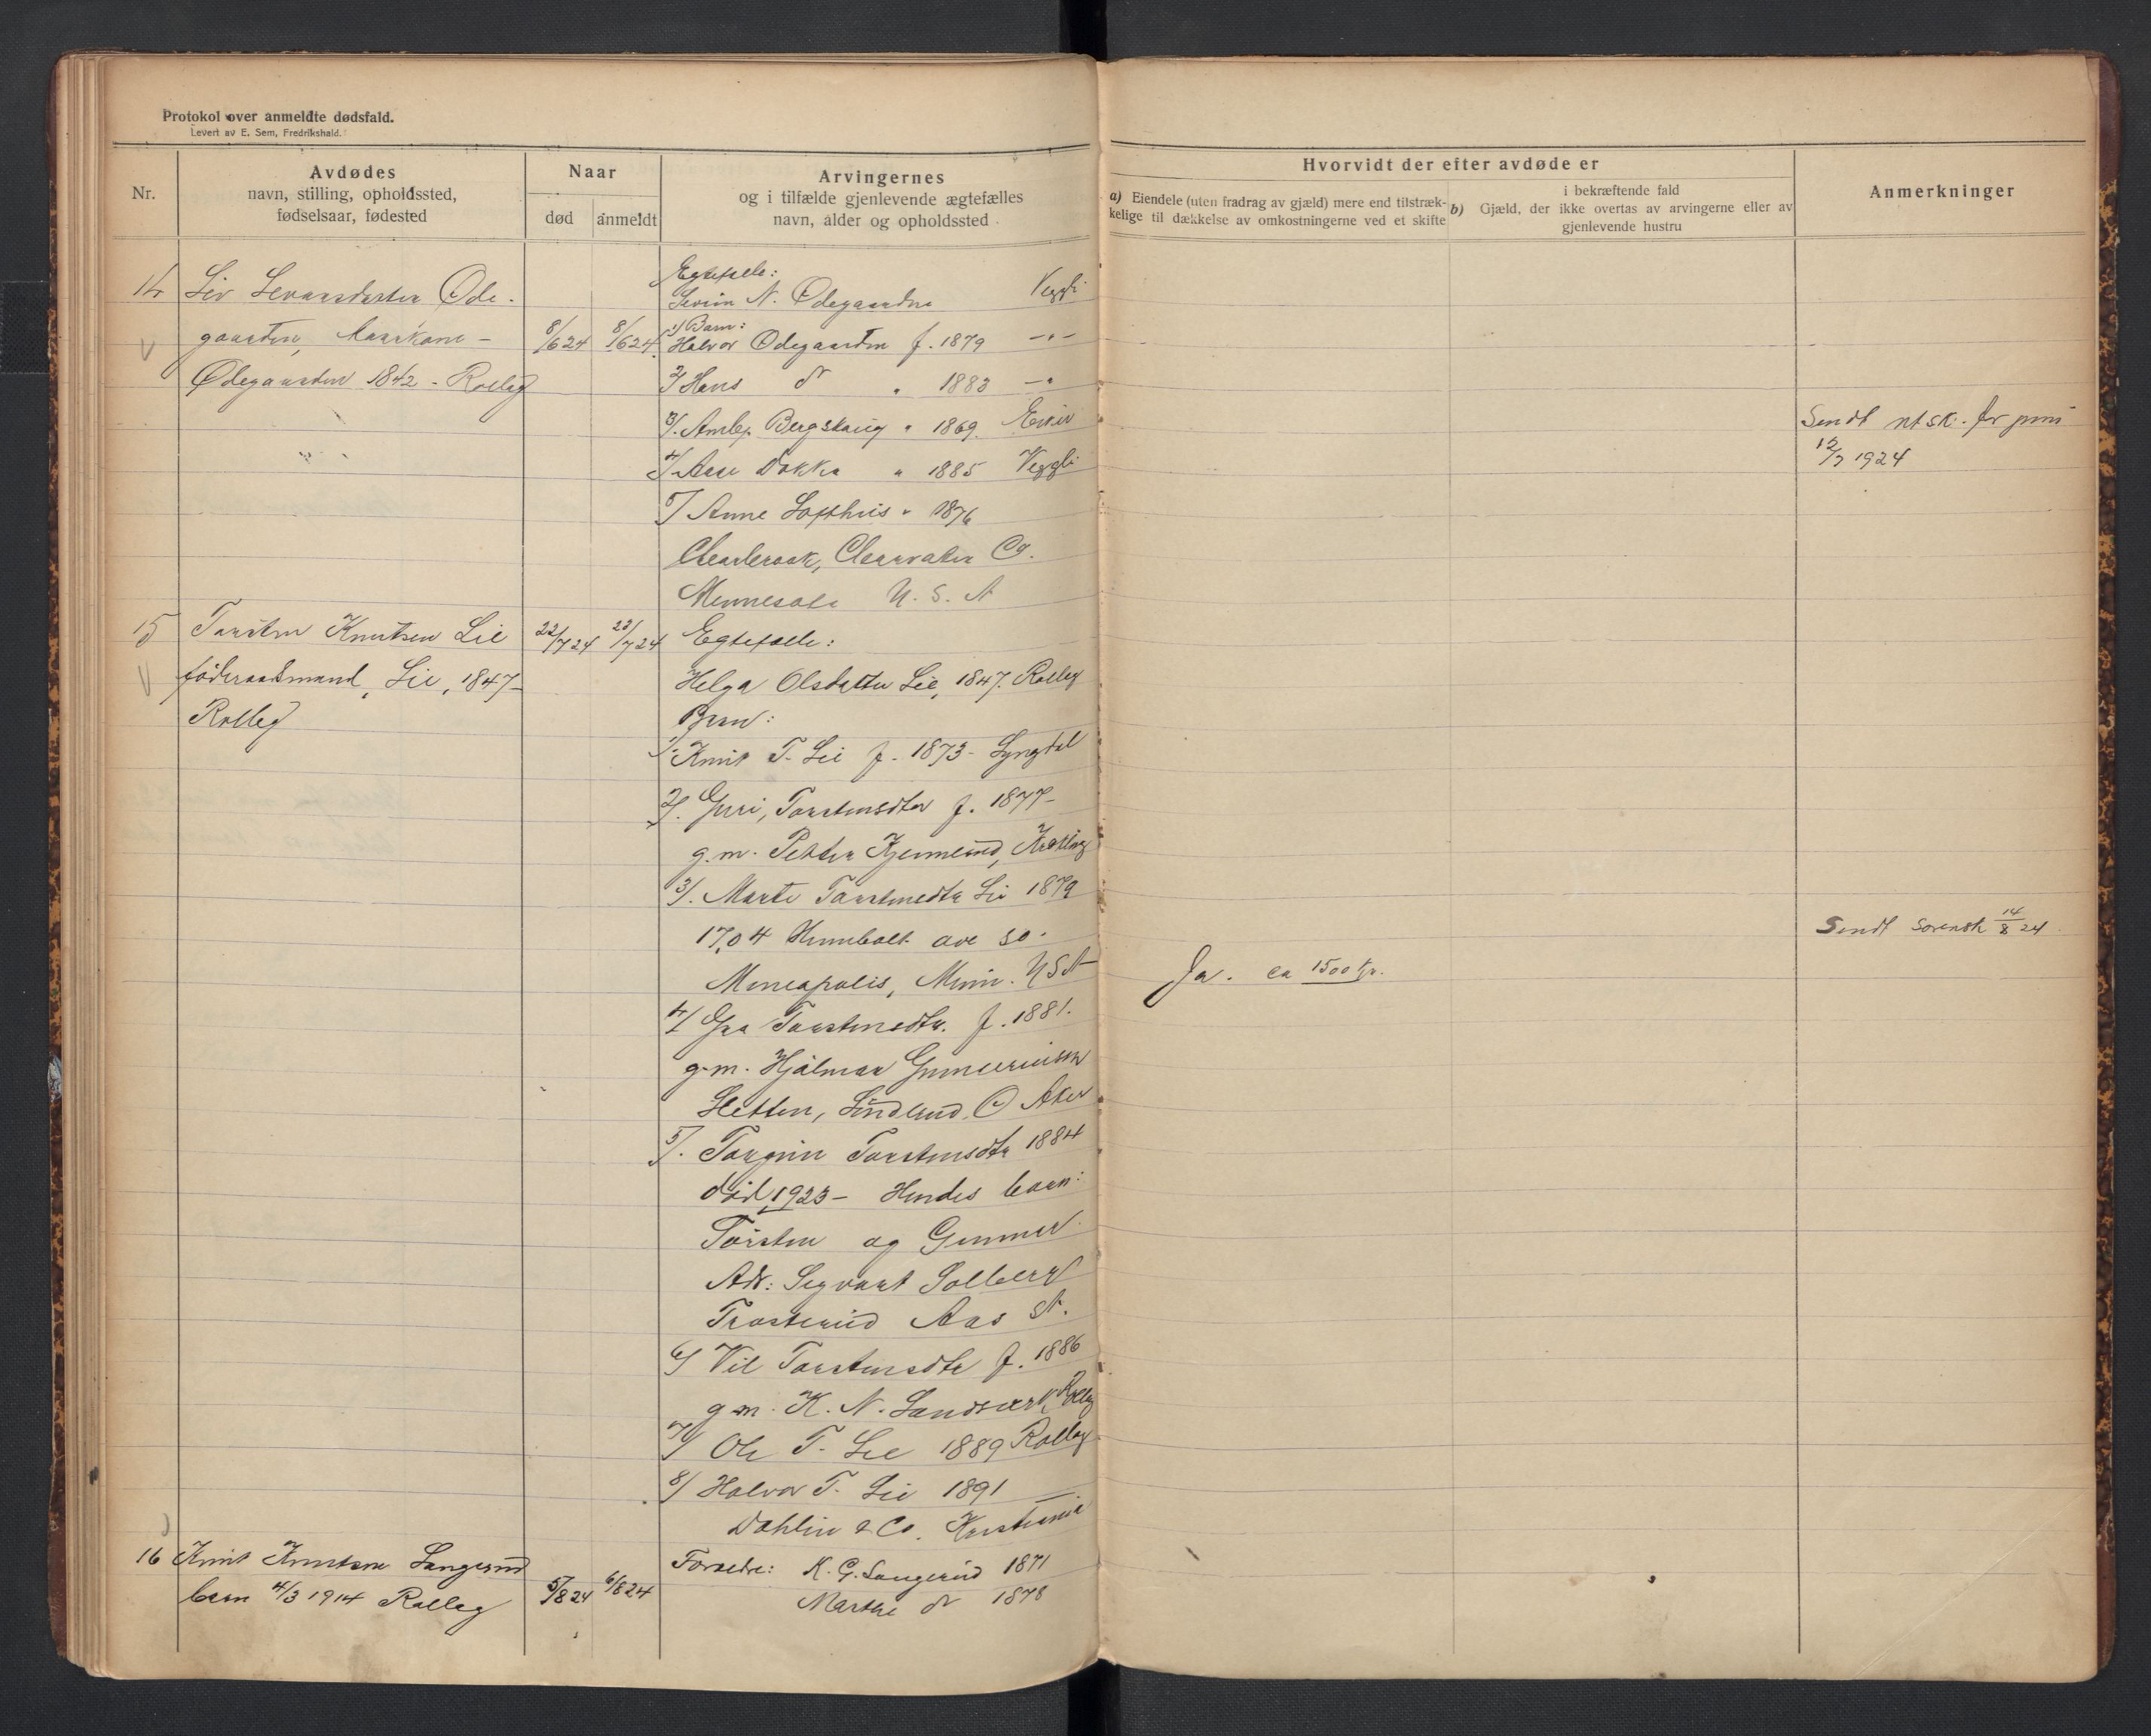 Protokol over anmeldte dødsfald.
Levert av E. Sem, Fredrikshald.
Nr.
Avdødes
navn, stilling, opholdssted,
fødselsaar, fødested
Naar
død
anmeldt
Arvingernes
og i tilfælde gjenlevende ægtefælles
navn, alder og opholdssted
Hvorvidt der efter avdøde er
a) Eiendele (uten fradrag av gjæld) mere end tilstræk-
kelige til dækkelse av omkostningerne ved et skifte
b)
i bekræftende fald
Gjæld, der ikke overtas av arvingerne eller av
gjenlevende hustru
Anmerkninger
14 Liv Ode-
gaarden, kaarkone -
Ødegaarden 1842 - Rollag
8/6 24 8/6 24
Egtefælle:
N. Ødegaarden Veggli
1/ Barn:
Halvor Ødegaarden f. 1879 -"-
2/ Hans do " 1883 -"
3/. Bergskaug " 1869.
4/ Aase Dokka " 1885 Veggli
5/ Anne Lofthus " 1876
Clearbrook, Clearwater Co.
Mennesota U. S. A
Sendt
12/7 1924
15 Torsten Knutsen Lie
føderaadsmand, Lie, 1847-
Rollag
22/7 24 23/7 24
Egtefælle:
Helga Olsdatter Lie, 1847. Rollag
Barn:
1/. Knut T. Lie f. 1873 - Lyngdal
2/. Guri, Torstensdter f. 1877-
g.m. Petter
3/. Marte Torstensdtr Lie 1879
1704 Humbolt ave so.
Mineapolis, Minn. USA
4/ Gro Torstensdtr. f. 1881.
g.m. Hjalmar
Sletten, Aker
5/. Torgun Torstensdtr 1884
død 1923 - Hendes barn:
Torsten og Gunner
Adr: Sigvart Solberg
Trosterud Aas st.
6/ Vil Torstensdtr f. 1886
g m. K. N. Landsverk, Rollag
7/ Ole T. Lie 1889 Rollag
8/ Halvor T. Lie 1891
Dahlin & Co. Kristiania
Ja. ca 1500 kr.
Sendt sorensk 14/8 24
16 Knut Knutsen Langerud
barn 4/3 1914 Rollag
5/8 24 6/8 24
Forældre: K. G. Langerud 1871
Marthe do 1878